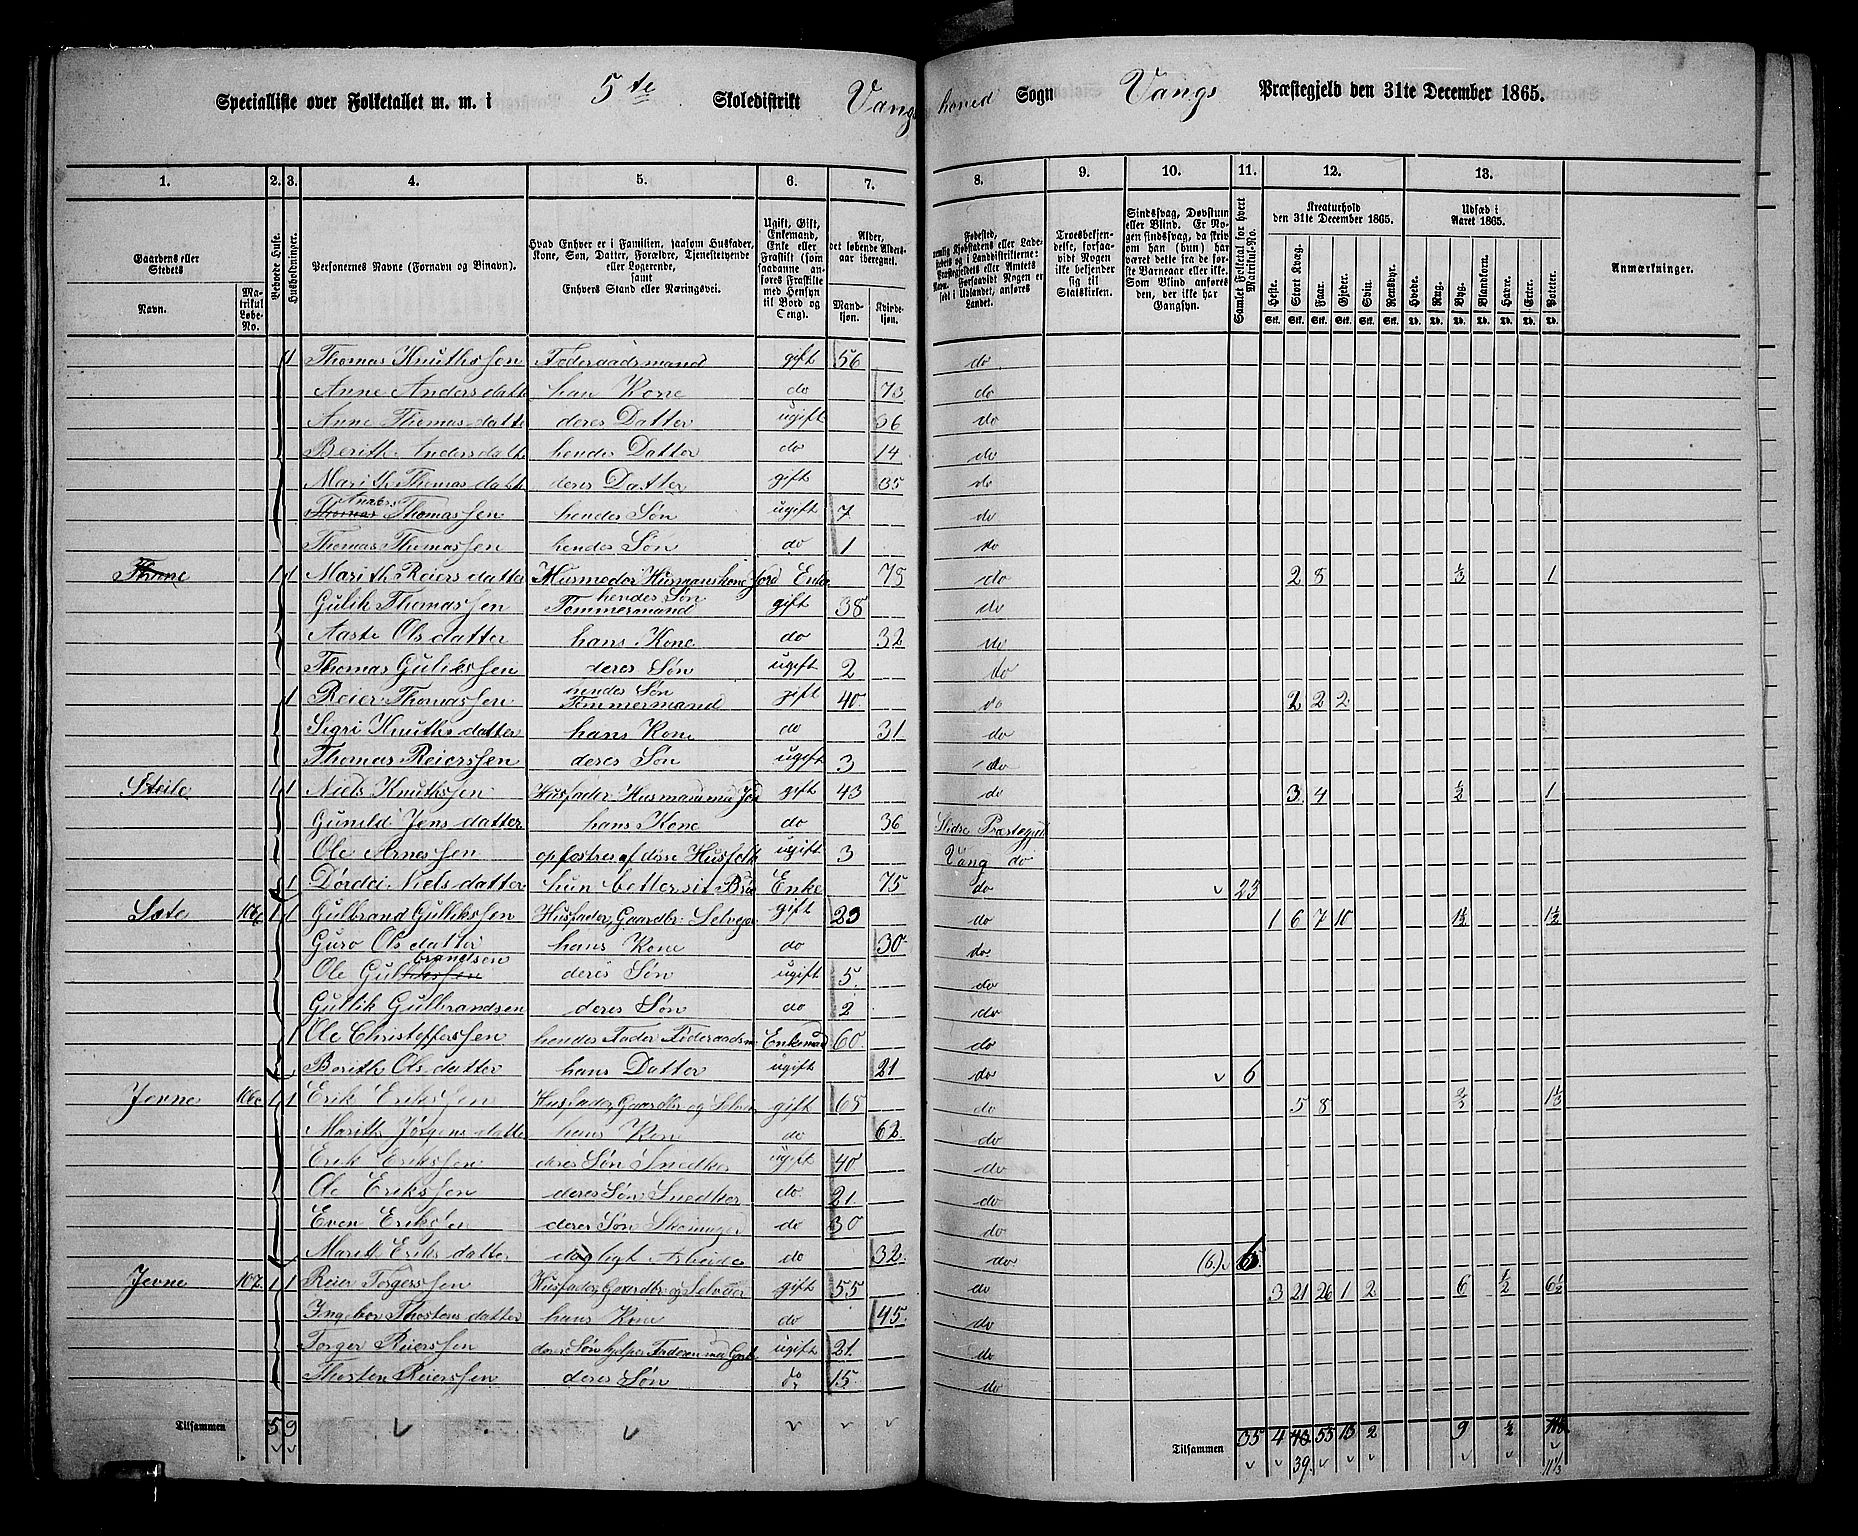 Specialliste over Folketallet m. m. i 5te Skoledistrikt Vangs hoved Sogn Vangs Præstegjeld den 31te December 1865.
1. 2. 3. 4. 5. 6. 7. 8. 9. 10. 11. 12. 13.
Gaardens eller Stedets Navn. Matrikul Løbe-No. Beboede Huse. Husholdninger. Personernes Navne (Fornavn og Binavn). Hvad Enhver er i Familien, saasom Husfader, Kone, Søn, Datter, Forældre, Tjenestetyende eller Logerende, samt Enhvers Stand eller Næringsvei. Ugift, Gift, Enkemand, Enke eller Fraskilt (som saadanne anføres Fraskilte med Hensyn til Bord og Seng). Alder, det løbende Alders-aar iberegnet. Mandkjøn. Kvindekjøn. Fødested, Troesbekjendelse, forsaavidt Nogen ikke bekjender sig til Statskirken. Sindssvag, Døvstum eller Blind. Er Nogen sindssvag, da skriv om han (hun) har været dette fra de første Barneaar eller ikke. Som Blind anføres den, der ikke har Gangsyn. Samlet Folketal for hvert Matrikul-No. Kreaturhold den 31te December 1865. Heste. Stort Kvæg. Faar. Gjeder. Svin. Rensdyr. Udsæd i Aaret 1865. Hvede. Rug. Byg. Blandkorn. Havre. Erter. Poteter. Anmærkninger.
1 Thomas Knuthssen Føderaadsmand gift 56 do
Anne Andersdatte han Kone do 73 do
Anne Thomasdatte deres Datter ugift 66 do
Berith Andersdatte hendes Datter do 14 do
Marith Thomasdatt deres Datter gift 35 do
Thomas Anders Thomassen hendes Søn ugift 7 do
Thomas Thomassen hendes Søn do 1 do
Thune 1 1 Marith Reiersdatter Husmoder Husmanskone jord Enke 75 do 2 8 1/3 1
Gulik Thomassen hendes Søn Tømmermand gift 38 do
Aaste Olsdatter hans Kone do 32 do
Thomas Gulikssen deres Søn ugift 2 do
1 Reier Thomassen hendes Søn Tømmermand gift 40 do 2 2 2
Sigri Knuthsdatter hans Kone do 31 do
Thomas Reierssen deres Søn ugift 3 do
Steile 1 1 Niels Knuthssen Husfader Husmand med Jord gift 43 do 3 4 1/2 1
Gunild Jensdatter hans Kone do 36 Slidre Præstegjel
Ole Arnessen opfostres af disse Husfolk ugift 3 Vang do
1 Dørdei Nielsdatter hun betler sit Brø Enke 75 do 23
Sæte 106 1 1 Gulbrand Gullikssen Husfader, Gaardbr: Selveier gift 29 do 1 6 7 10 1 1/2 1 1/2
Guro Olsdatter hans Kone do 30 do
Ole Gulbrandsen deres Søn ugift 5 do
Gullik Gulbrandsen deres Søn do 2 do
1 Ole Christofferssen hendes Fader Føderaadsm Enkemand 60 do
Berith Olsdatter hans Datter ugift 21 do 6
Jevne 106c 1 1 Erik Erikssen Husfader, Gaardbr og Selveier gift 68 do 5 8 2/3 1 1/3
Marith Jørgensdatte hans Kone do 62 do
Erik Erikssen deres Søn Snedker ugift 40 do
Ole Erikssen deres Søn Snedker do 21 do
Even Erikssen deres Søn Skomager do 30 do
Marit Eriksdatter dagligt Arbeide do 32 do (6) 6
Jevne 107 1 1 Reier Torgerssen Husfader Gaardbr: og Selveier gift 55 do 3 21 26 1 2 6 1/2 6 1/2
Ingebor Thostensdatter hans Kone do 45 do
Torger Reierssen deres Søn hjelper Faderen med Gaarb ugift 21 do
Thosten Reierssen deres Søn do 15 do
Tilsammen 5 9 Tilsammen 35 4 40 55 13 2 9 1/2
39 11 1/3